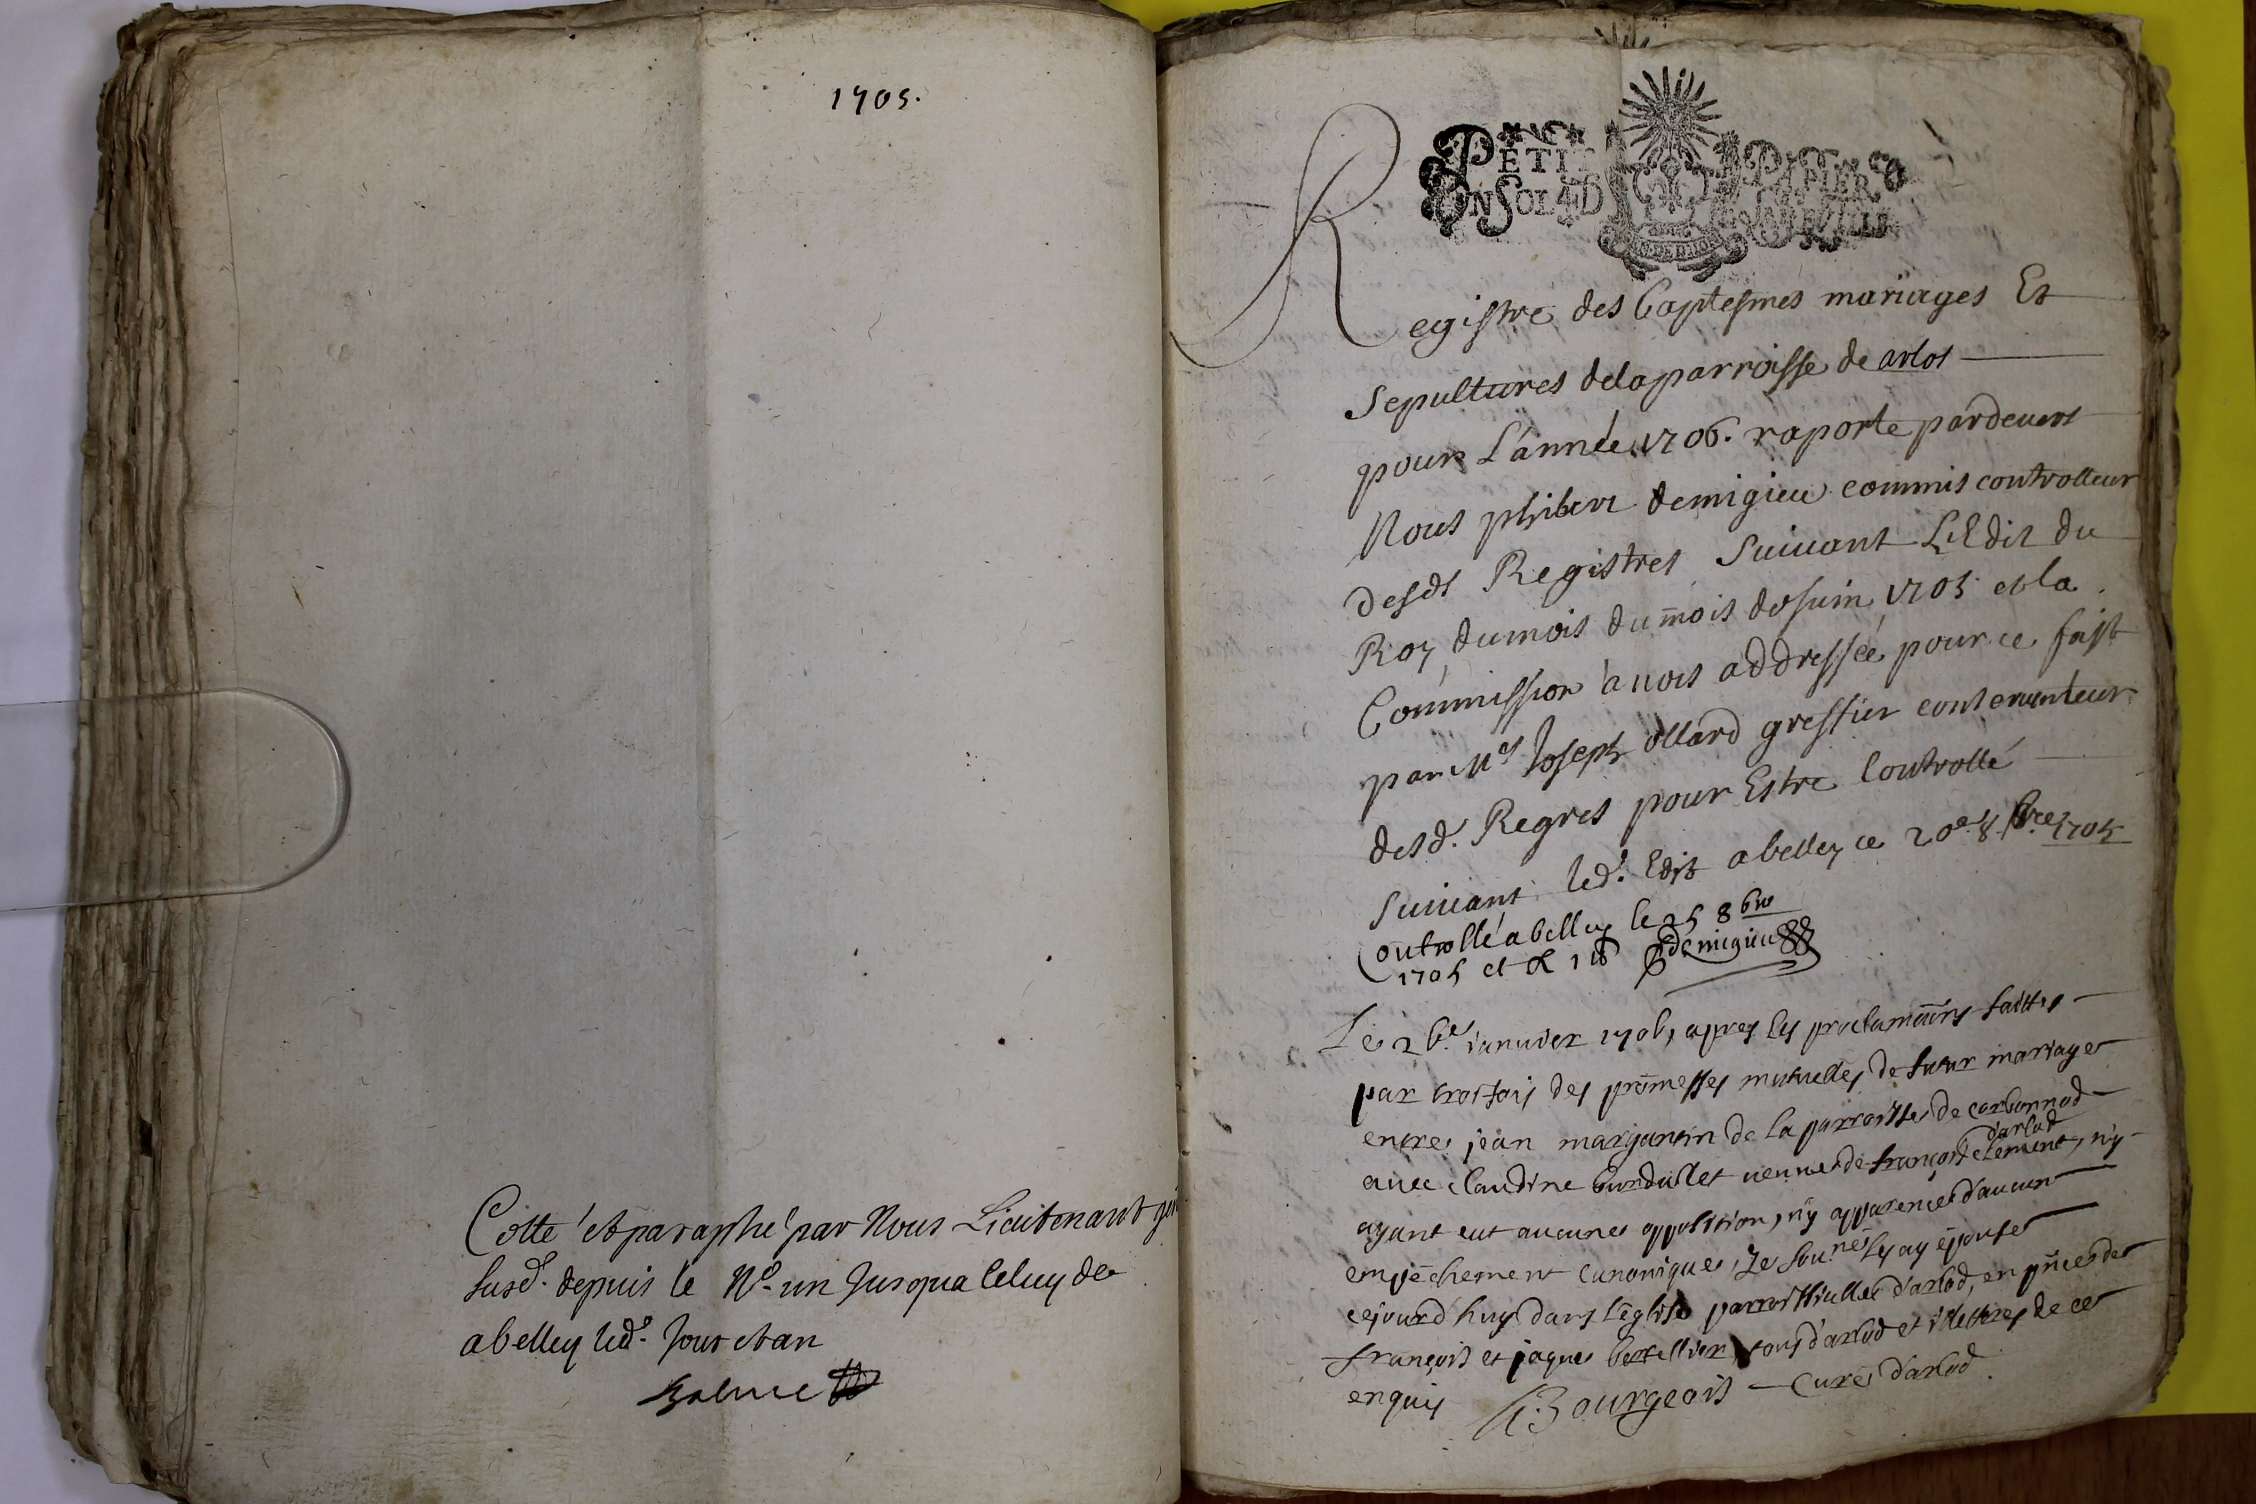 1705.
Cotté et paraphé par Nous Lieutenant gén
susd. depuis le No. un Jusqua Celuy de
a belley led. Jour et an
PETIT PAPIER
UN SOL 4 D
Registre des baptesmes mariages Et
Sepultures de la parroisse de arlot
pour L'année 1706. raporté pardevers
Nous philibert demigieu commis controlleur
desds Registres Suivant L'Edit du
Roy du mois du mois de Juin 1705 et la
Commission à nous addressée pour ce faist
par Me Joseph ollard greffier conservateur
desd. Regres pour Estre Controllé
Suivant led. Edit a belley ce 20e 8bre 1705
Controllé a belley le 25 8bre
1705 et R 1 # Demigieu
Le 26e januier 1706, apres les proclamaõns faittes
par trois fois des promesses mutuelles de futur mariage
entre jean marjantin de la parroisse de corbonnod
d'arlod
auec Claudine burdallet ueuue de françois Clement, n'y
ayant eut aucune opposition, n'y apparence d'aucun
empêchement canonique, Je sounés les ay épousé
cejourd'huy dans l'églisé parroissialle d'arlod, en pñce de
françois et jaques bertellier tous d'arlod et illettres de ce
enquis G. Bourgeois Curé d'arlod.